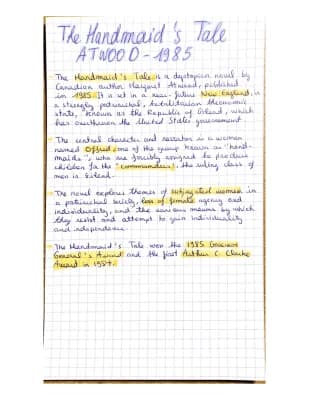 The Handmaid's Tale
ATWOOD - 1985
- The Handmaid's Tale is a dystopian novel by
Canadian author Margaret Atwood, published
in 1985. It is set in a near-future New England, in
a strongly patriarchal, totalitarian theonomic
state, known as the Republic of Gilead, which
has overthrown the United States government.
- The central character and narrator is a woman
named Offred, one of the group known as "hand-
maids", who are forcibly assigned to produce
children for the "commanders", the ruling class of
men in Gilead.
- The novel explores themes of subjugated women in
a patriarchal society, loss of female agency and
individuality, and the various means by which
they resist and attempt to gain individuality
and independence.
- The Handmaid's Tale won the 1985 Governor
General's Award and the first Arthur C. Clarke
Award in 1987.